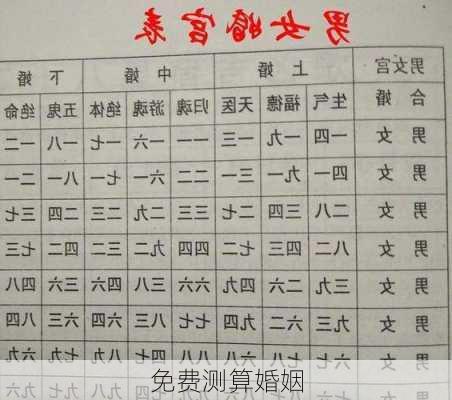 男女婚宫表
男女宫 上婚 中婚 下婚
合婚 生气 福德 天医 归魂 游魂 绝体 五鬼 绝命
男女 一四 一九 一三 一一 一六 一七 一八 一二
男女 四一 九一 三一 二二 六一 七一 八一 二一
男女 二八 三四 二七 三三 二九 二三 二四 三七
男女 八二 四三 七二 四四 九二 三二 四二 七三
男女 三九 二六 四九 六六 三八 四六 三六 四八
男女 九三 六二 九四 七七 八三 六四 六三 八四
男女 六七 七八 六八 八八 六九
免费测算婚姻